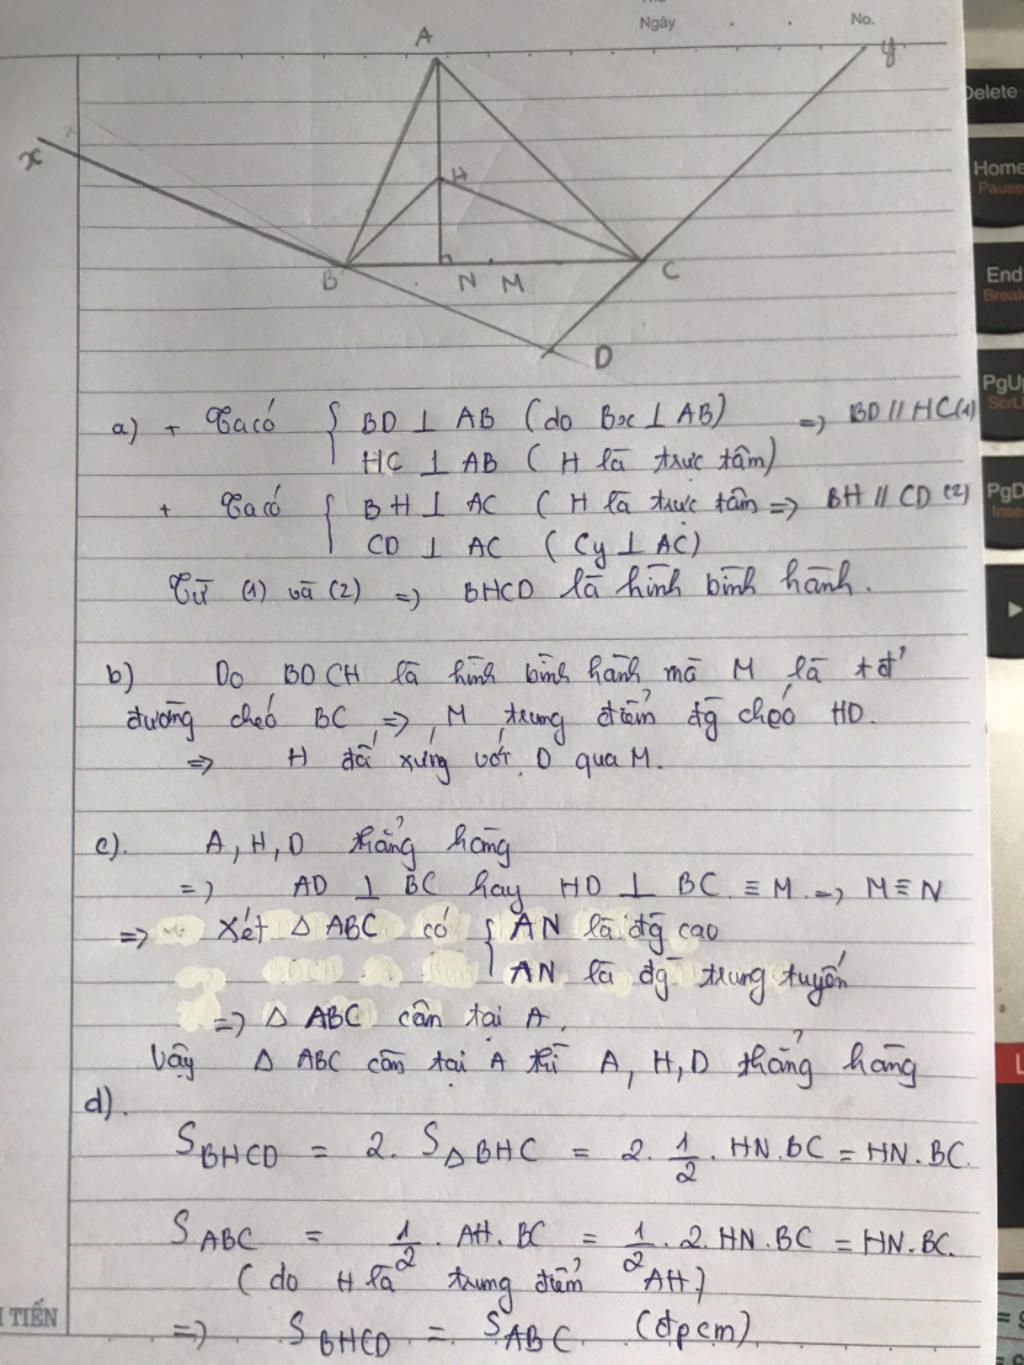 Ngày
No.
A
y
x
x
H
B
N
M
C
D
Delete
Home
Pause
End
Break
PgUp
ScrL
PgD
Inse
a) + Ta có { BD ⊥ AB (do Bx ⊥ AB) => BD // HC (1)
HC ⊥ AB ( H là trực tâm)
+ Ta có { BH ⊥ AC ( H là trực tâm => BH // CD (2)
CD ⊥ AC ( Cy ⊥ AC)
Từ (1) và (2) => BHCD là hình bình hành.
b) Do BDCH là hình bình hành mà M là tđ'
đường chéo BC => M trung điểm đg chéo HD.
=> H đối xứng với D qua M.
c). A, H, D thẳng hàng
=> AD ⊥ BC hay HD ⊥ BC ≡ M. => M ≡ N
=> Xét Δ ABC có { AN là đg cao
AN là đg trung tuyến
=> Δ ABC cân tại A.
Vậy Δ ABC cân tại A thì A, H, D thẳng hàng
d).
S BHCD = 2. S Δ BHC = 2. 1/2 . HN . BC = HN . BC.
S ABC = 1/2 . AH . BC = 1/2 . 2. HN . BC = HN . BC.
(do H là trung điểm AH)
=> S BHCD = S ABC (đpcm)
TIẾN